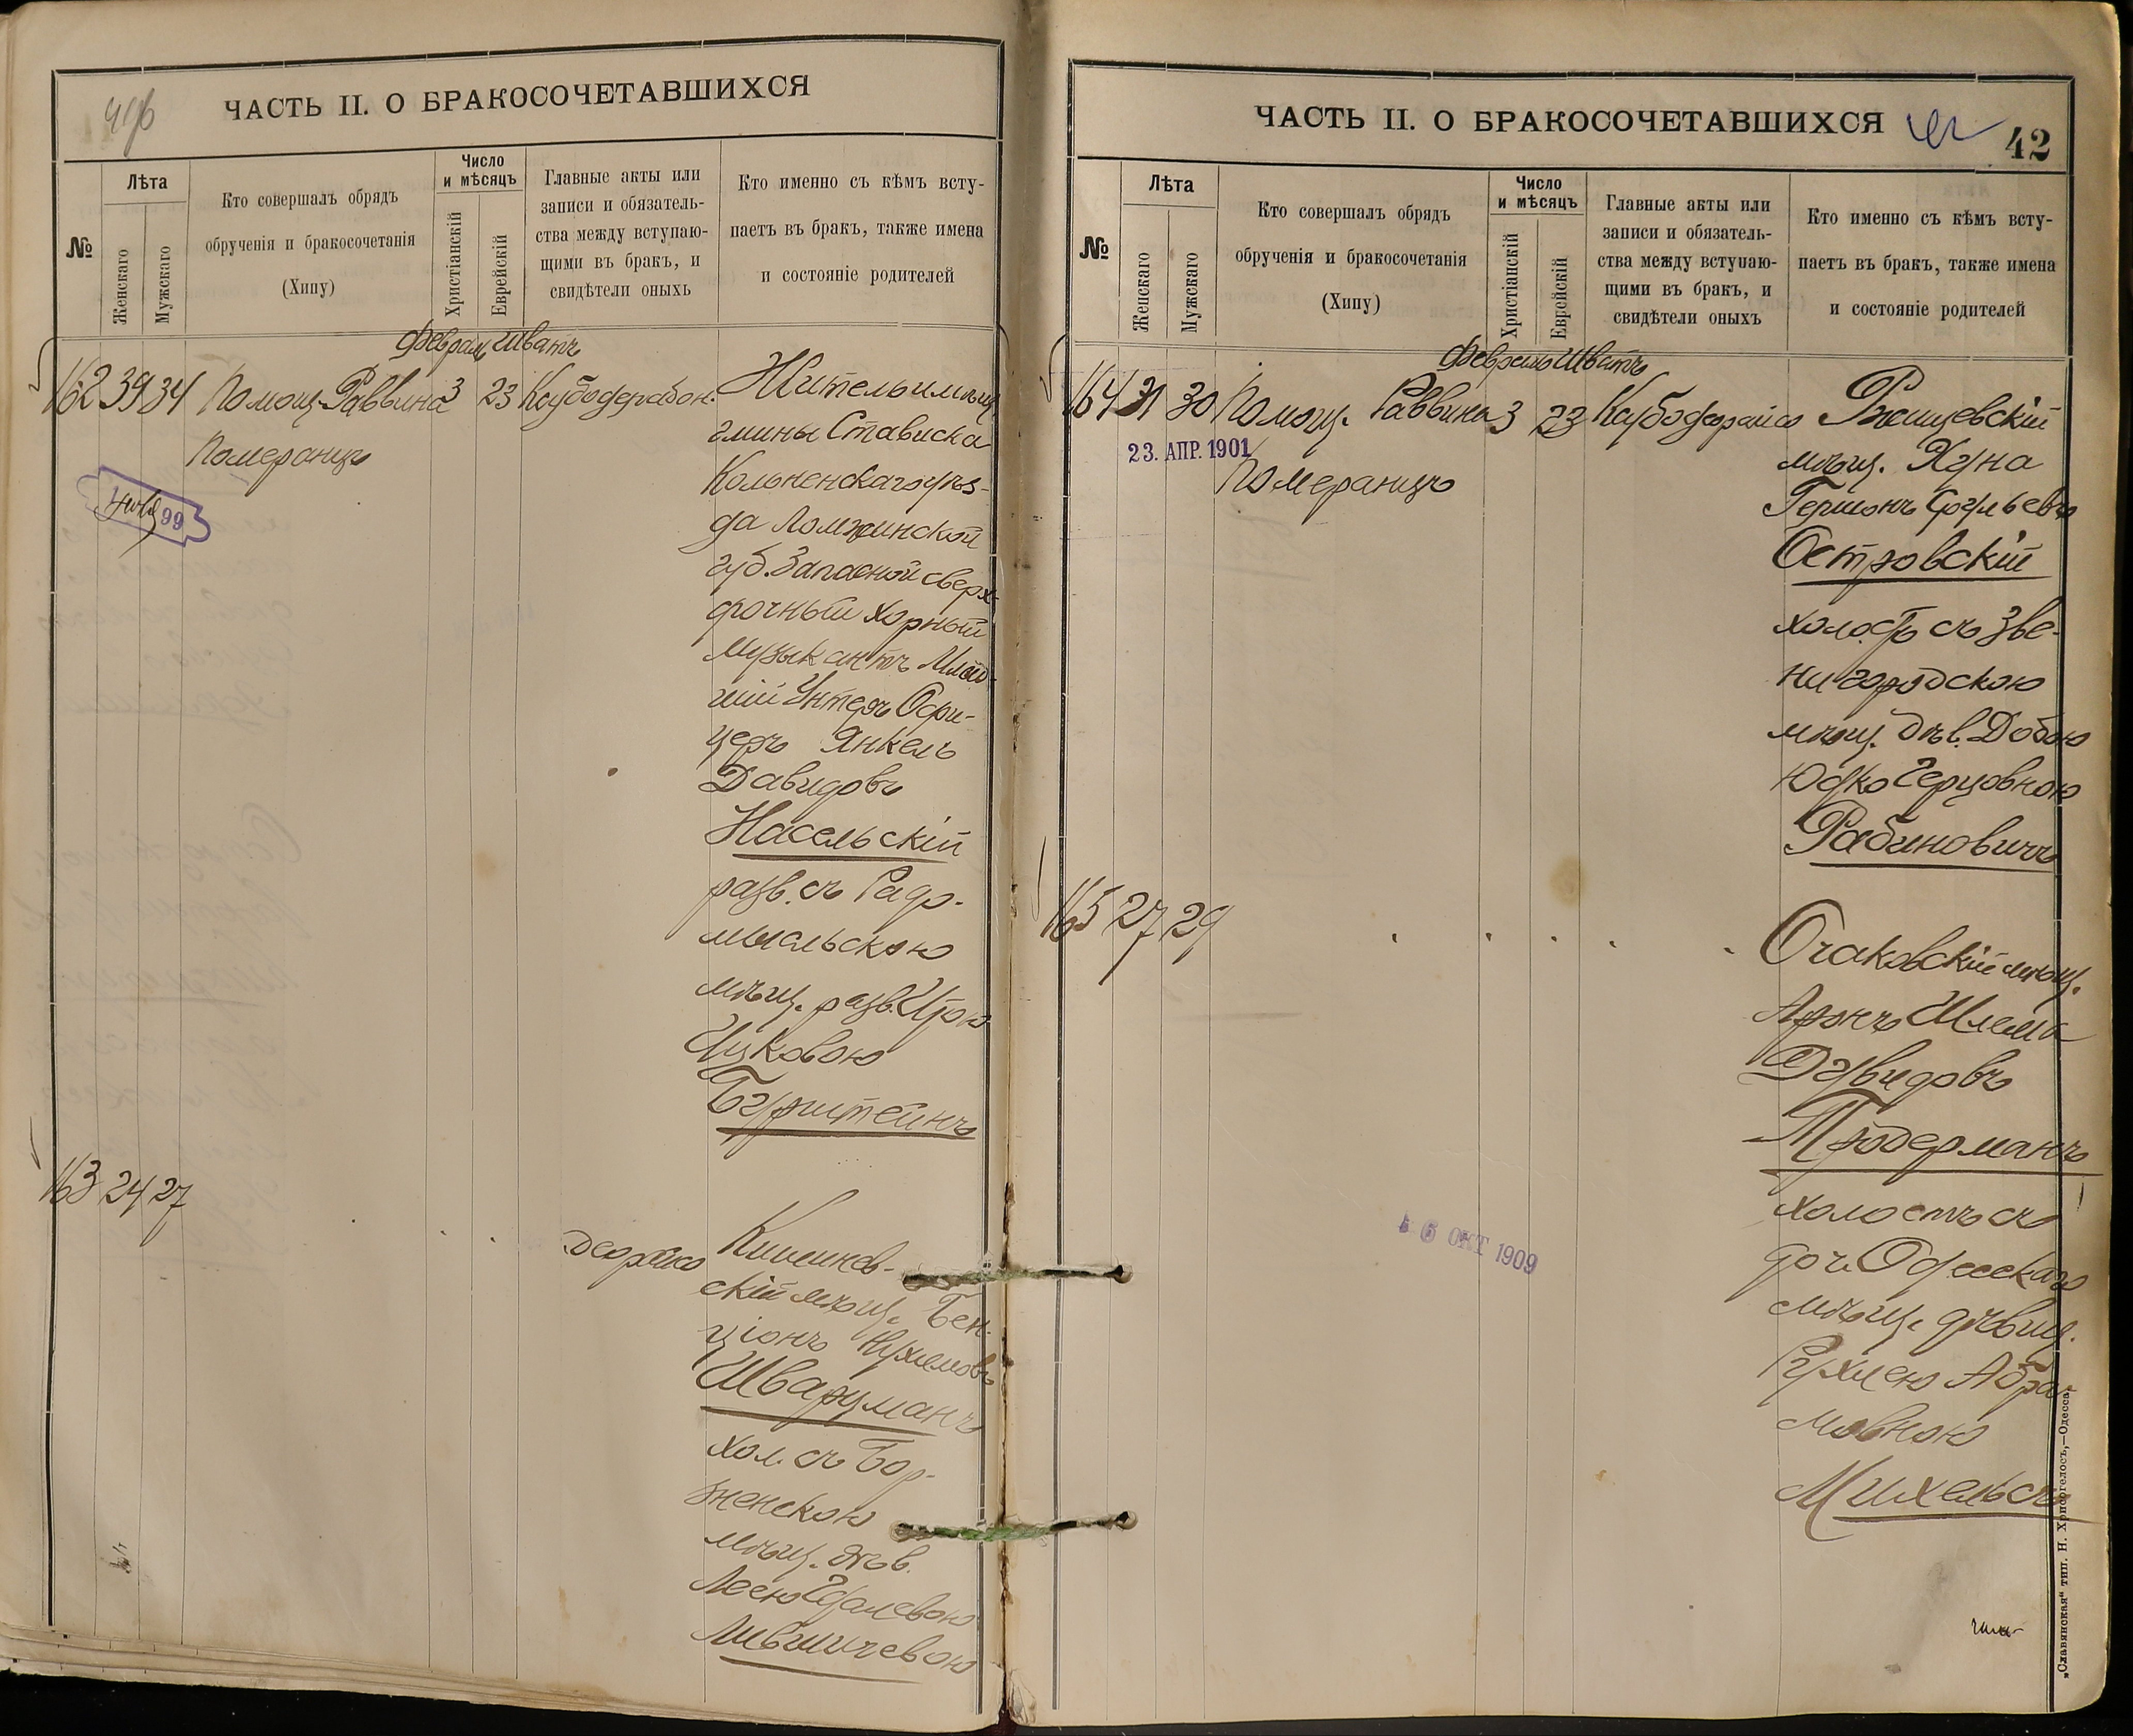 ЧАСТЬ II. О БРАКОСОЧЕТАВШИХСЯ
№
Лѣта
Женскаго
Мужскаго
Кто совершалъ обрядъ
обрученія и бракосочетанія
(Хипу)
Число
и мѣсяцъ
Христіанскій
Еврейскій
Главные акты или
записи и обязатель-
ства между вступаю-
щими въ бракъ, и
свидѣтели оныхъ
Кто именно съ кѣмъ всту-
паетъ въ бракъ, также имена
и состояніе родителей
Февраль Шватъ
162 39 34 Помощ. Раввина 3 23
Померанцъ
99
Житель
гмины Стависка
Кольненскаго уѣз-
да Ломжинской
губ. Запасной сверх-
срочный хорный
музыкантъ Млад-
шій Унтеръ Офи-
церъ Янкель
Давидовъ
Насельскій
разв. съ Радо-
мысльскою
мѣщ. разв.
Ицковою
Бурштейнъ
163 24 27
Кишинев-
скій мѣщ. Бен-
ціонъ Нухимовъ
Шварцманъ
хол. съ Бор-
зненскою
мѣщ. дѣв.
Лившичевою
ЧАСТЬ II. О БРАКОСОЧЕТАВШИХСЯ
42
№
Лѣта
Женскаго
Мужскаго
Кто совершалъ обрядъ
обрученія и бракосочетанія
(Хипу)
Число
и мѣсяцъ
Христіанскій
Еврейскій
Главные акты или
записи и обязатель-
ства между вступаю-
щими въ бракъ, и
свидѣтели оныхъ
Кто именно съ кѣмъ всту-
паетъ въ бракъ, также имена
и состояніе родителей
Февраль Шватъ
164 31 30 Помощ. Раввина 3 23
23. АПР. 1901
Померанцъ
Ржищевскій
мѣщ. Хуна
Гершонъ
Островскій
холостъ съ Зве-
нигородскою
мѣщ. дѣв. Добою
Герцовною
Рабиновичъ
165 27 29
Очаковскій мѣщ.
Аронъ Шлема
Давидовъ
холостъ съ
доч. Одесскаго
мѣщ. дѣвиц.
Рухлею Абра-
мовною
Михельсъ
ОКТ 1909
„Славянская“ тип. Н. Хрисогелосъ,—Одесса.